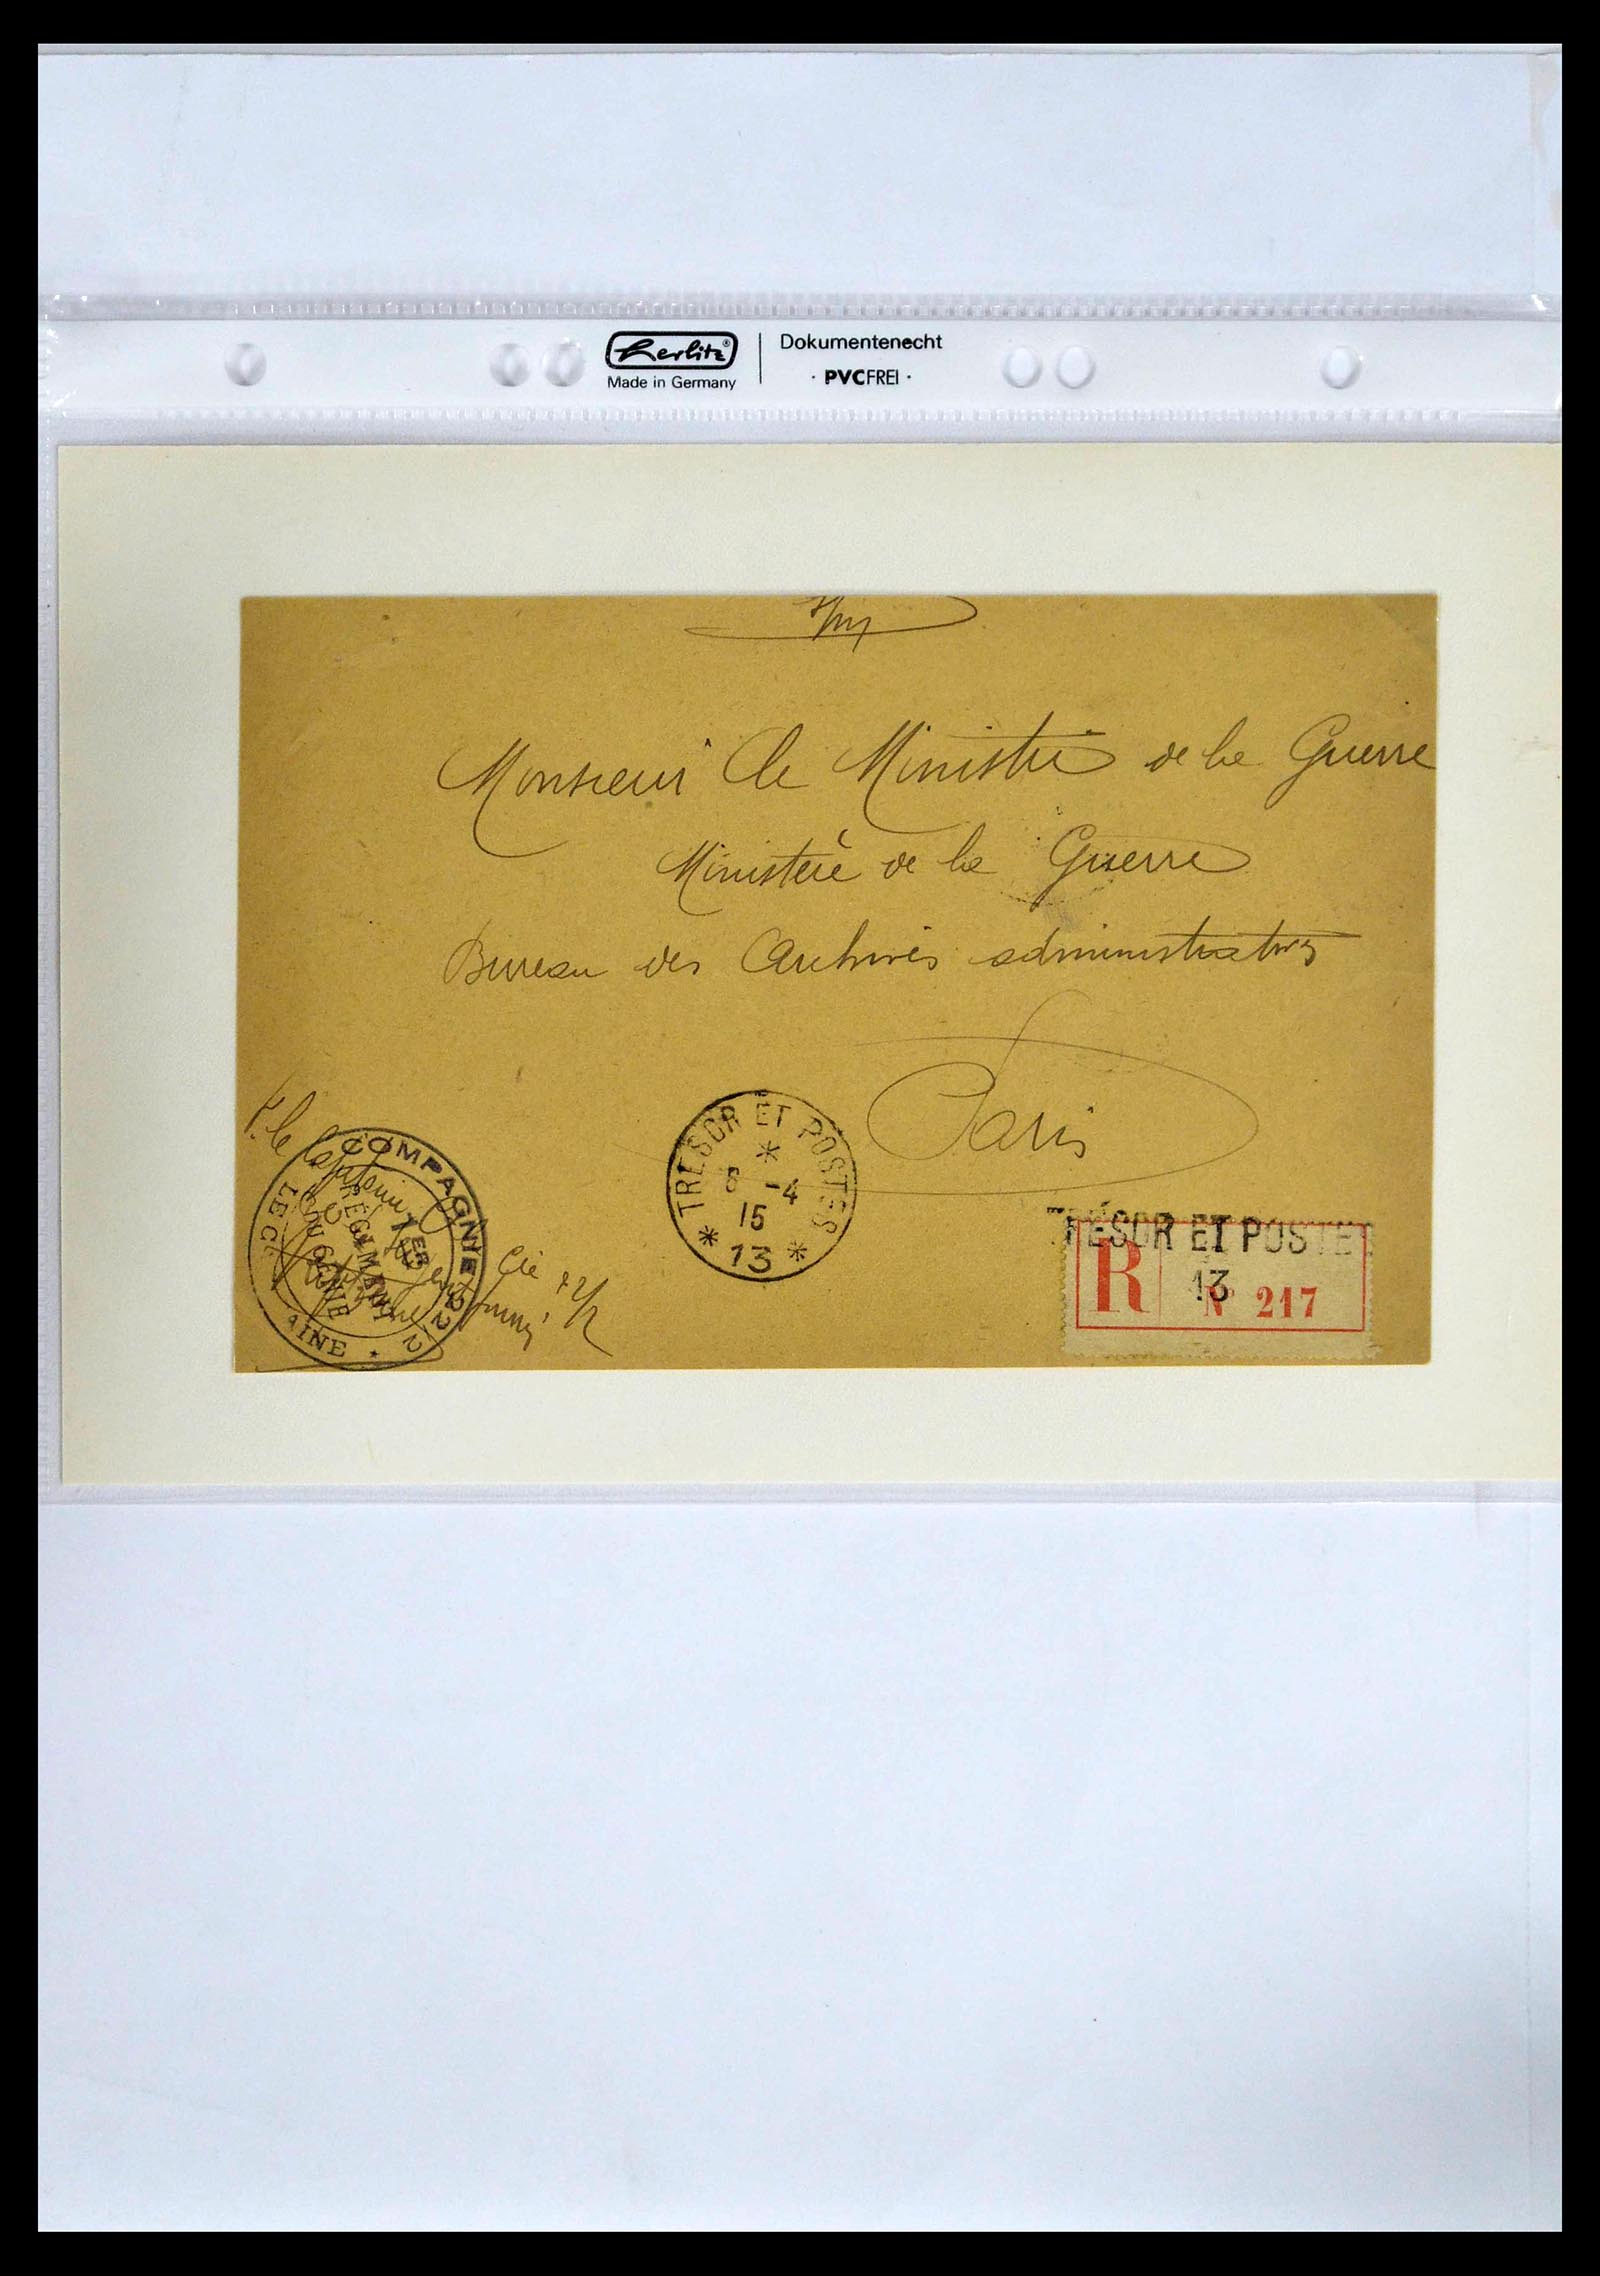 Herlitz®
Made in Germany
Dokumentenecht
· PVCFREI ·
Monsieur le Ministre de la Guerre
Ministère de la Guerre
Bureau des Archives administratives
Paris
P. le Capitaine
Cie 22/2
COMPAGNIE 22/2
1ER RÉGIMENT
DU GÉNIE
LE CAPITAINE *
TRÉSOR ET POSTES
*
6 -4
15
* 13 *
TRÉSOR ET POSTES
13
R N° 217